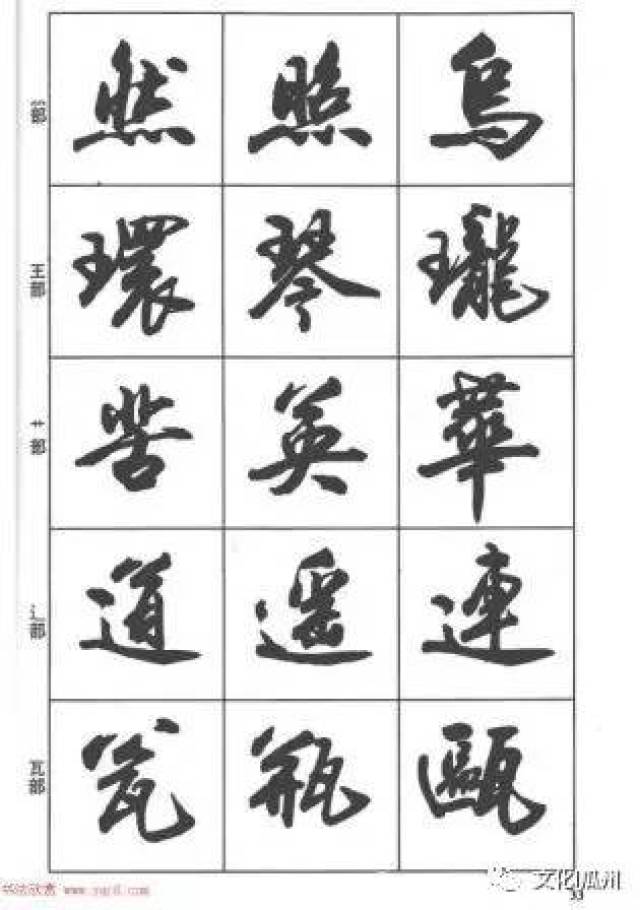 灬部
然 照 烏
王部
環 琴 瓏
艹部
苦 英 華
辶部
道 遥 連
瓦部
瓮 瓶 甌
书法欣赏 www.yac8.com
文化瓜州
33